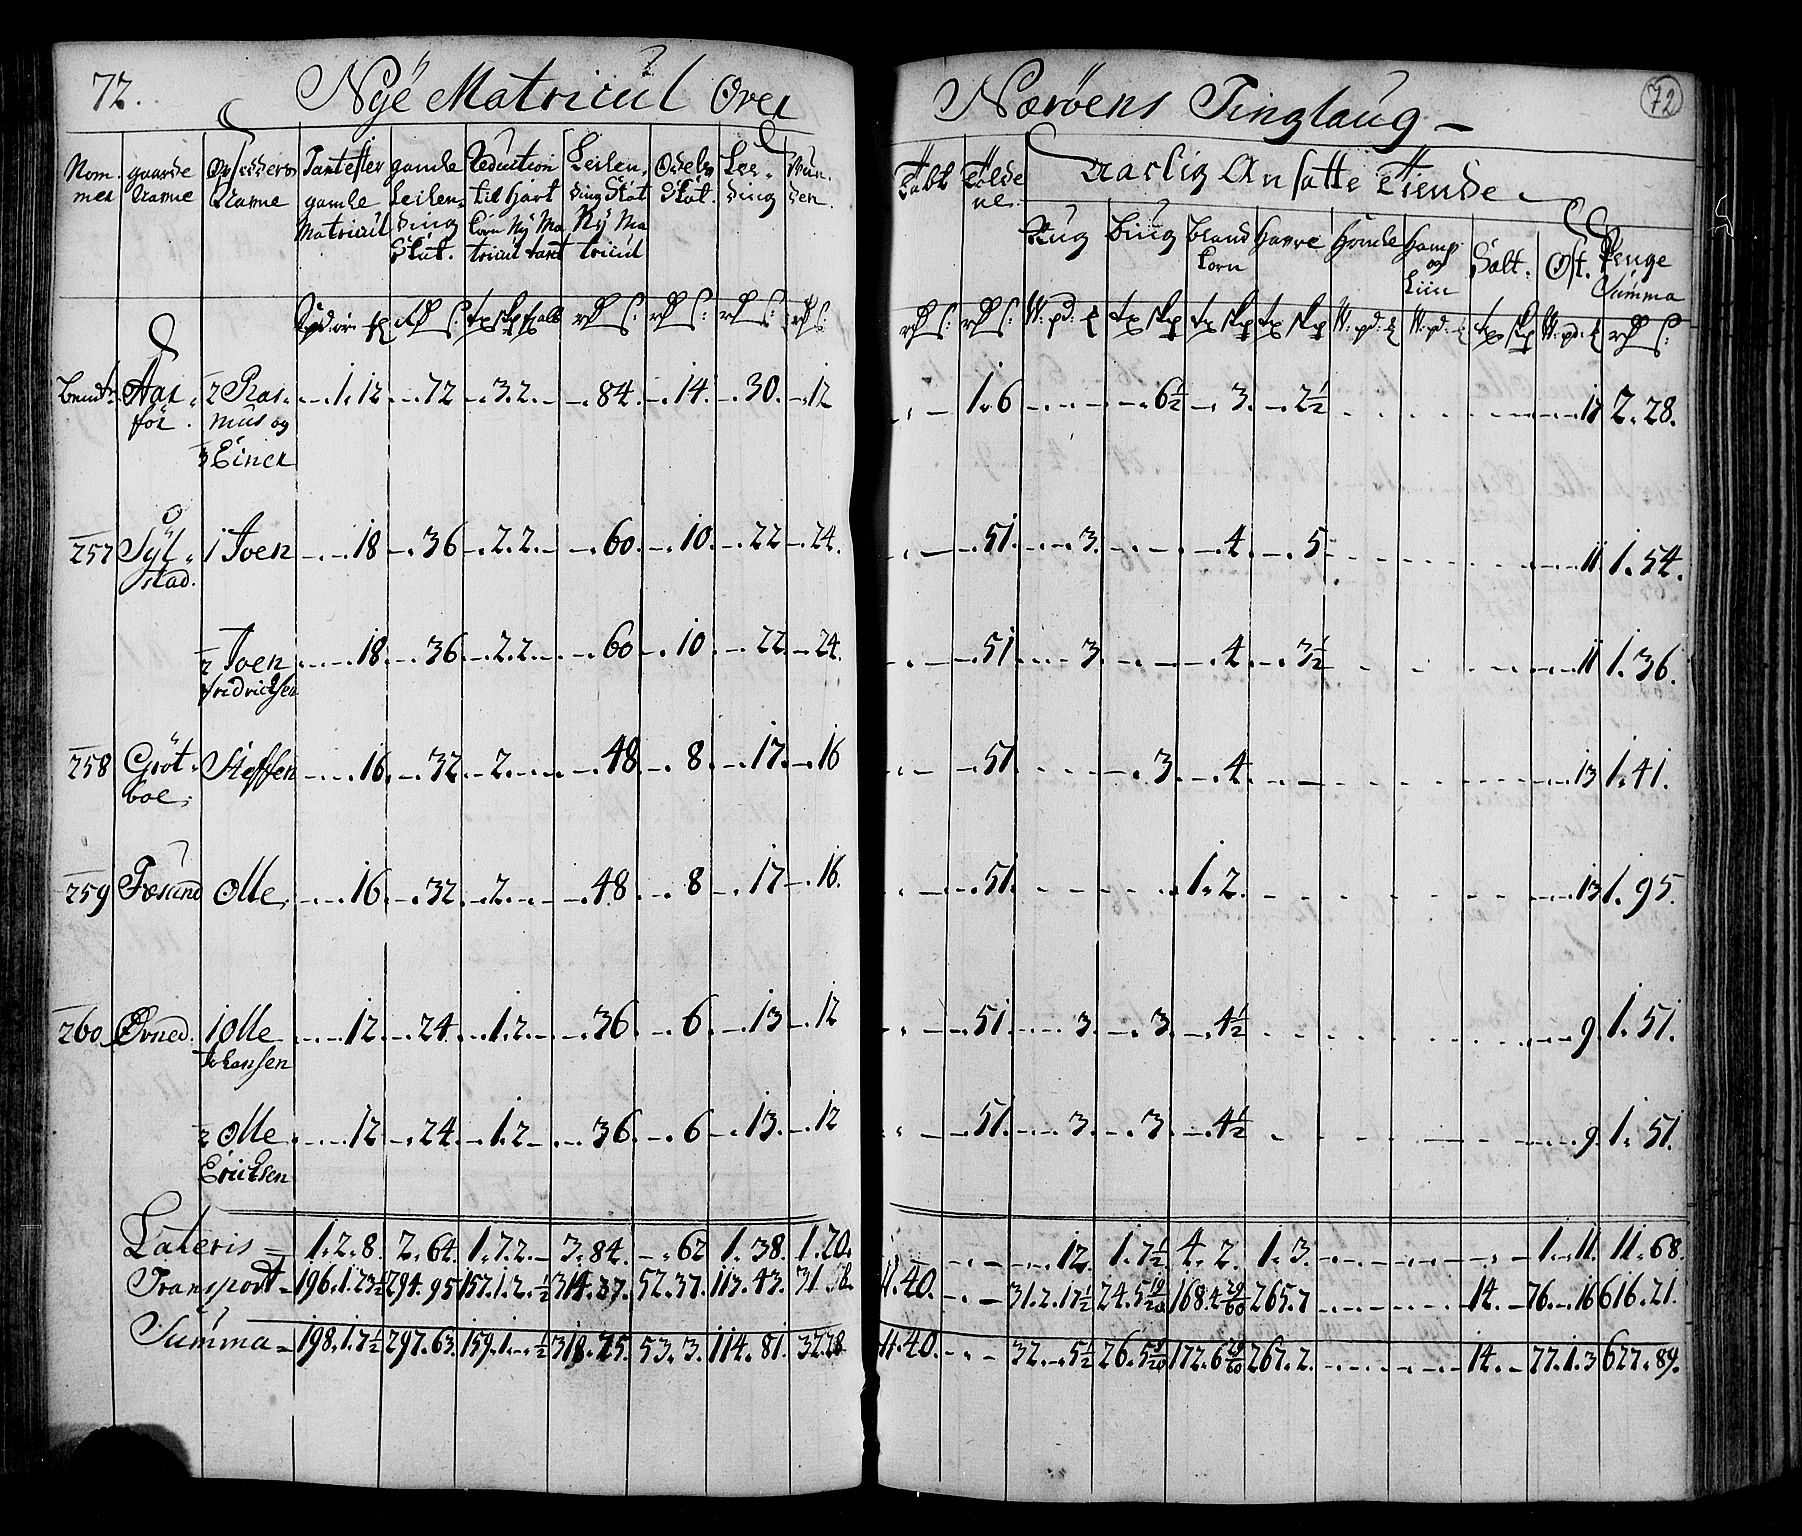 72. Nÿe Matricul Over Nærøens Tinglaug 72
Nom mer | gaarde Navne | Opsidderes Navne | Taxt efter gamle Matricul | gamle Leilen ding Skat. | Reduction til Hart Korn Nÿ Ma tricul taxt | Leilen ding Skat Nÿ Ma tricul | Odels Skat. | Lee ding | | | ne. | Aarlig Ansatte Tiende
Rug | Biug | bland korn | Havre | Homle | Hamp og Liin | Salt. | Ost. | Penge Summa
Aar för. | 2 Ras mus og 3 Einer | 1. 12 | 72 | 3. 2. | 84. | 14. | 30. | 12 | 1. 6 | 6½ | 3. | 2½ | 17 | 2. 28.
257 | Sÿl stad. | 1 Joen | 18 | 36 | 2. 2. | 60. | 10. | 22 | 24. | 51. | 3. | 4 | 5 | 11 | 1. 54.
2 Joen Fredrichsen | 18. | 36 | 2. 2. | 60 | 10 | 22. | 24. | 51 | 3. | 4 | 3½ | 11 | 1. 36.
258 | Gröt boe. | Steffen | 16. | 32 | 2. | 48. | 8 | 17. | 16 | 51. | 3. | 4. | 13 | 1. 41.
259 | Fæsund | Olle | 16 | 32. | 2. | 48 | 8 | 17 | 16. | 51. | 1. 2. | 13 | 1. 95.
260. | Ovned. | 1 Olle Johansen | 12 | 24. | 1. 2 | 36 | 6 | 13 | 12 | 51. | 3. | 3. | 4½ | 9. | 1. 51.
2 Olle Ericksen | 12 | 24. | 1. 2 | 36 | 6 | 13. | 12 | 51. | 3. | 3 | 4½ | 9. | 1. 51.
Lateris | 1. 2. 8. | 2. 64. | 1. 7. 2. | 3. 84. | 62 | 1. 38. | 1. 20. | 12. | 1. 7½ | 4. 2. | 1. 3. | 1. 11. | 11. 68.
Transport | 196. 1. 23½ | 294. 95 | 157. 1. 2. ½ | 314. 37. | 52. 37. | 113. 43. | 31. | 11. 40. | 31. 2. 17½ | 24. 5 19/20 | 168. 4 29/60 | 265. 7 | 14. | 76. 16 | 616. 21.
Summa | 198. 1. 7½ | 297. 63. | 159. 1. ½ | 318. 25. | 53. 3. | 114. 81. | 32 28 | 11. 40. | 32. 5½ | 26. 5 | 172. 6 29/60 | 267. 2. | 14. | 77. 1. 3 | 627. 89.